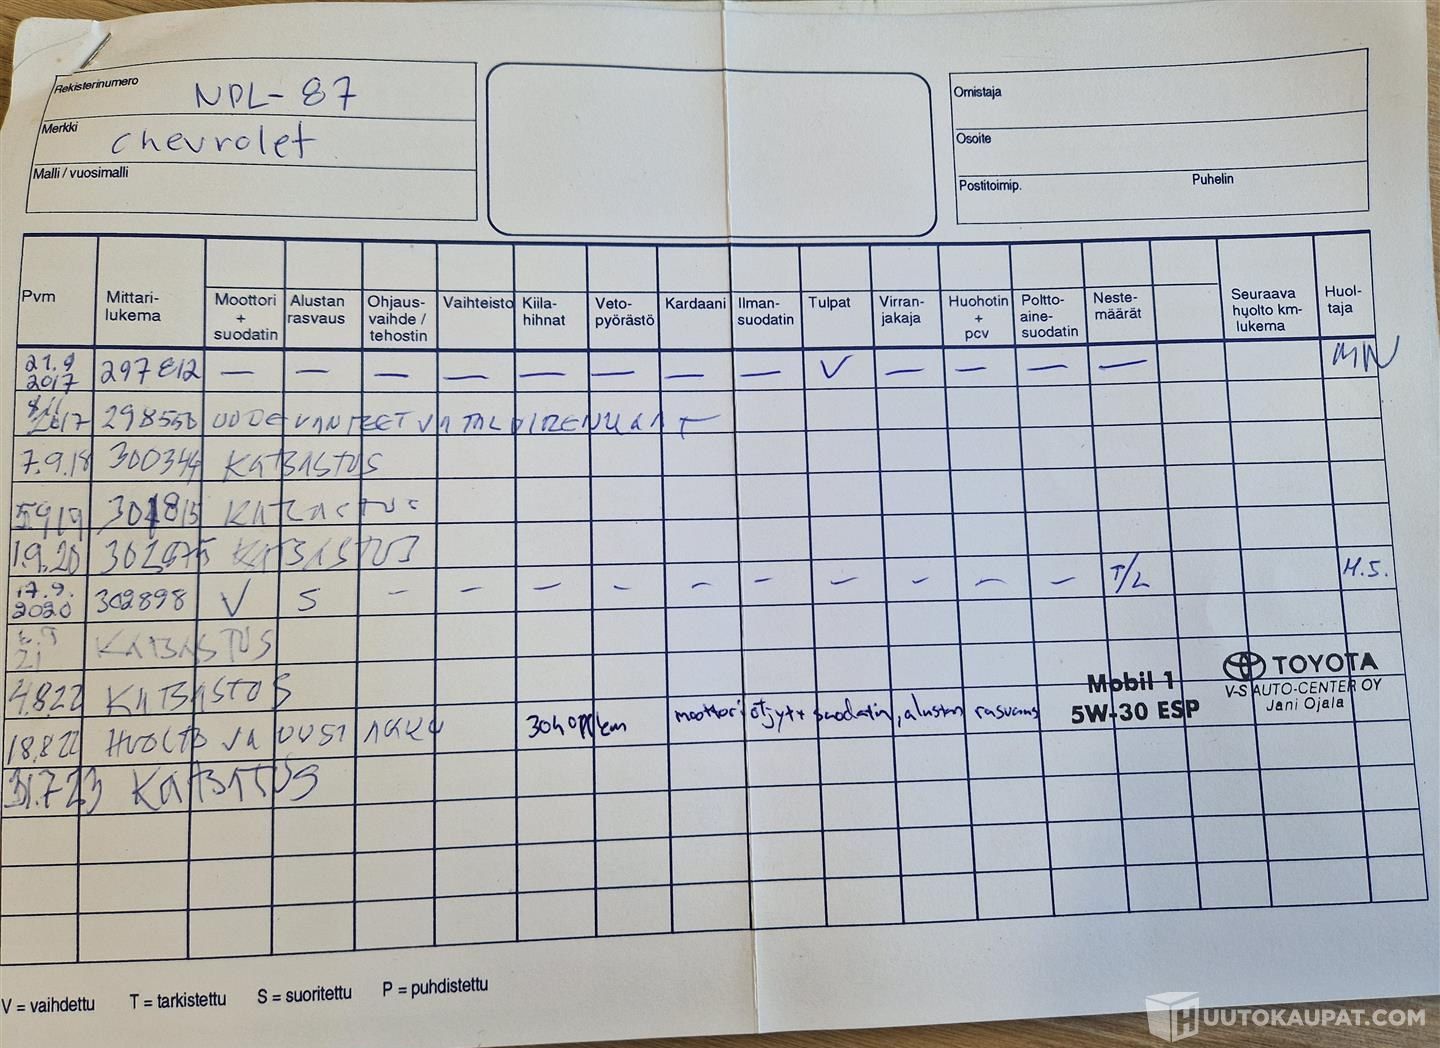 Rekisterinumero NDL-87
Merkki Chevrolet
Malli / vuosimalli
Omistaja
Osoite
Postitoimip. Puhelin
Pvm Mittari-lukema Moottori + suodatin Alustan rasvaus Ohjaus-vaihde / tehostin Vaihteisto Kiila-hihnat Veto-pyörästö Kardaani Ilman-suodatin Tulpat Virran-jakaja Huohotin + pcv Poltto-aine-suodatin Neste-määrät Seuraava hyolto km-lukema Huol-taja
21.9 2017 297812 — — — — — — — — V — — — — MN
2017 298550 UUDE VANTEET JA TALVIRENKAAT
7.9.18 300344 KATSASTUS
5919 301815 KATSASTUS
1.9.20 KATSASTUS
17.9. 2020 302898 V S - - - - - - - - - - T/L H.S.
21 KATSASTUS
4.8.22 KATSASTUS
Mobil 1
5W-30 ESP
TOYOTA
V-S AUTO-CENTER OY
Jani Ojala
18.8.22 HUOLTO JA UUSI AKKU km moottoriöljyt+ suodatin, alustan rasvaus
31.7.23 KATSASTUS
V = vaihdettu T = tarkistettu S = suoritettu P = puhdistettu
HUUTOKAUPAT.COM